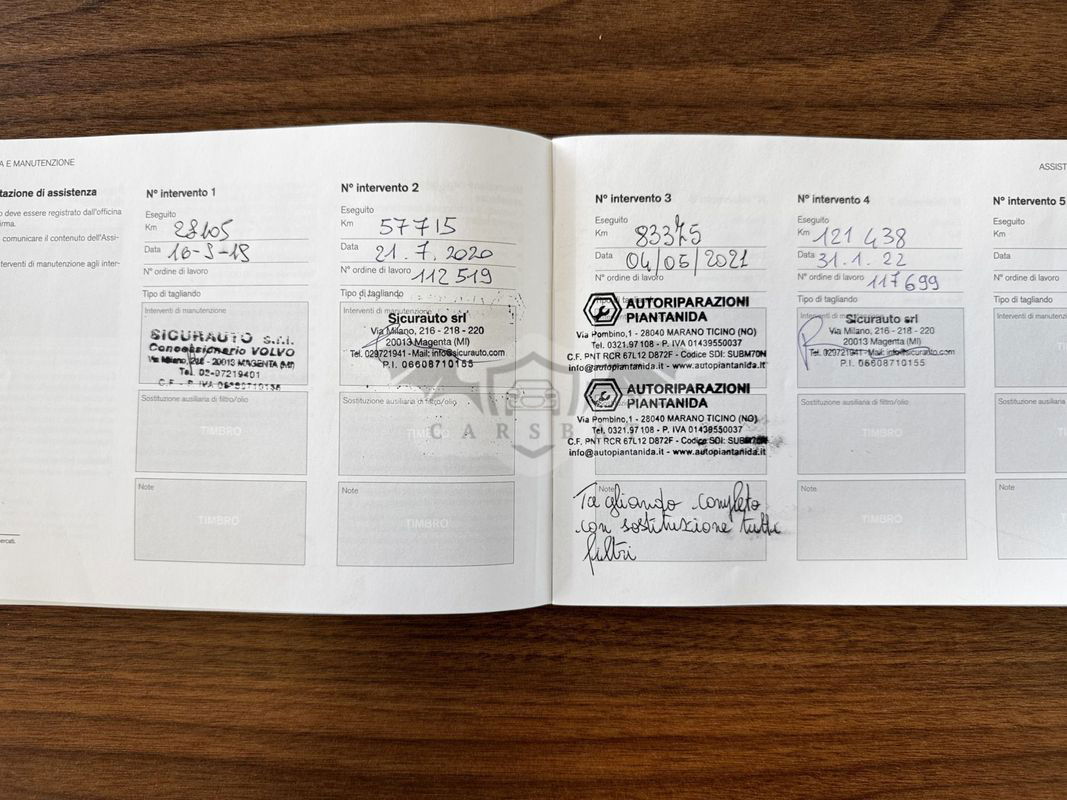 A E MANUTENZIONE
tazione di assistenza
o deve essere registrato dall'officina
irma.
comunicare il contenuto dell'Assi-
terventi di manutenzione agli inter-
ercati.
N° intervento 1
Eseguito
Km 28105
Data 16-9-19
N° ordine di lavoro
Tipo di tagliando
Interventi di manutenzione
SICURAUTO s.r.l.
Concessionario VOLVO
Via Milano, 216 - 20013 MAGENTA (MI)
Tel. 02-97219401
C.F. - P. IVA 06608710155
Sostituzione ausiliaria di filtro/olio
TIMBRO
Note
TIMBRO
N° intervento 2
Eseguito
Km 57715
Data 21.7.2020
N° ordine di lavoro 112519
Tipo di tagliando
Interventi di manutenzione
Sicurauto srl
Via Milano, 216 - 218 - 220
20013 Magenta (MI)
Tel. 029721941 - Mail: info@sicurauto.com
P.I. 06608710155
Sostituzione ausiliaria di filtro/olio
TIMBRO
Note
TIMBRO
ASSIST
N° intervento 3
Eseguito
Km 83375
Data 04/05/2021
N° ordine di lavoro
Tipo di tagliando
AUTORIPARAZIONI
PIANTANIDA
Via Pombino,1 - 28040 MARANO TICINO (NO)
Tel. 0321.97108 - P. IVA 01439550037
C.F. PNT RCR 67L12 D872F - Codice SDI: SUBM70N
info@autopiantanida.it - www.autopiantanida.it
AUTORIPARAZIONI
PIANTANIDA
Via Pombino,1 - 28040 MARANO TICINO (NO)
Tel. 0321.97108 - P. IVA 01439550037
C.F. PNT RCR 67L12 D872F - Codice SDI: SUBM70N
info@autopiantanida.it - www.autopiantanida.it
Note
Tagliando completo
con sostituzione tutti
filtri
N° intervento 4
Eseguito
Km 121 438
Data 31.1.22
N° ordine di lavoro 117699
Tipo di tagliando
Interventi di manutenzione
Sicurauto srl
Via Milano, 216 - 218 - 220
20013 Magenta (MI)
Tel. 029721941 - Mail: info@sicurauto.com
P.I. 06608710155
Sostituzione ausiliaria di filtro/olio
TIMBRO
Note
TIMBRO
N° intervento 5
Eseguito
Km
Data
N° ordine di lavoro
Tipo di tagliando
Interventi di
Sostituzione
Note